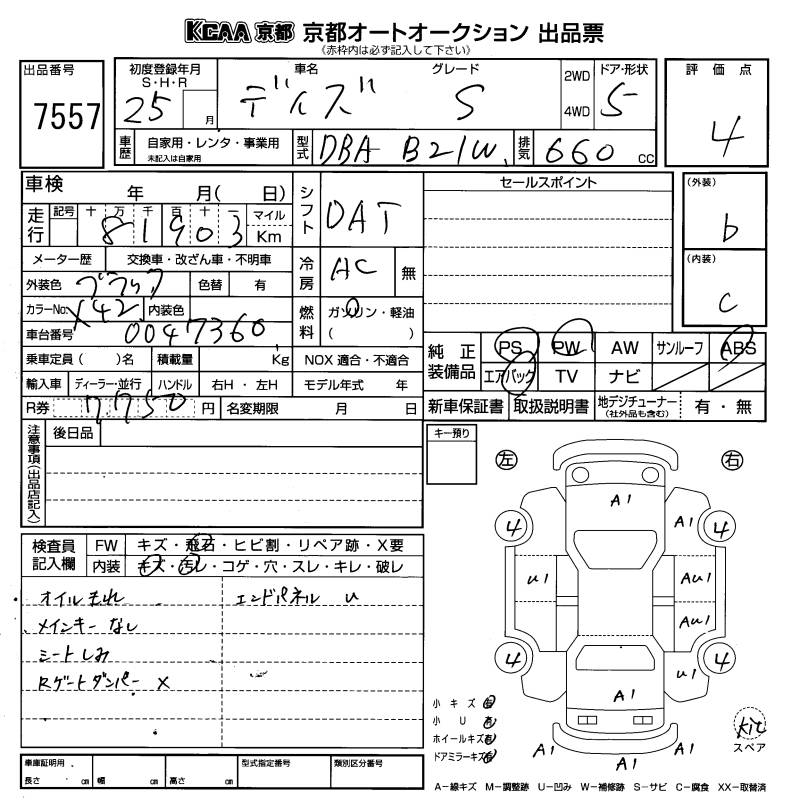 KCAA 京都 京都オートオークション 出品票
(赤枠内は必ず記入して下さい)
出品番号
7557
初度登録年月
S・H・R
25 月
車名
デイズ
グレード
S
2WD
4WD
ドア・形状
5
評価点
4
車歴
自家用・レンタ・事業用
未記入は自家用
型式
DBA B21W
排気
660 cc
車検 年 月( 日)
走行
記号 十 万 千 百 十 一 マイル
81903 Km
メーター歴 交換車・改ざん車・不明車
外装色 ブラック 色替 有
カラーNo. X42 内装色
車台番号 0047360
乗車定員( )名 積載量 Kg
輸入車 ディーラー・並行 ハンドル 右H・左H
R券 7,750 円 名変期限 月 日
シフト
DAT
冷房
AC 無
燃料
ガソリン・軽油
( )
NOX 適合・不適合
モデル年式 年
セールスポイント
(外装)
b
(内装)
c
純正装備品
PS PW AW サンルーフ ABS
エアバック TV ナビ
新車保証書 取扱説明書 地デジチューナー
(社外品も含む)
有・無
注意事項(出品店記入)
後日品
キー預り
検査員記入欄
FW キズ・飛石・ヒビ割・リペア跡・X要
内装 キズ・汚レ・コゲ・穴・スレ・キレ・破レ
オイルもれ
エンドパネル U
メインキーなし
シートしみ
Rゲートダンパー X
左 右
A1
4 A1 4
U1 AU1
AU1
4 U1 4
A1
小キズ 有
小U 有
ホイールキズ 有
ドアミラーキズ 有
A1 A1 A1
kit
スペア
車庫証明用
長さ cm 幅 cm 高さ cm
型式指定番号
類別区分番号
A-線キズ M-調整跡 U-凹み W-補修跡 S-サビ C-腐食 XX-取替済